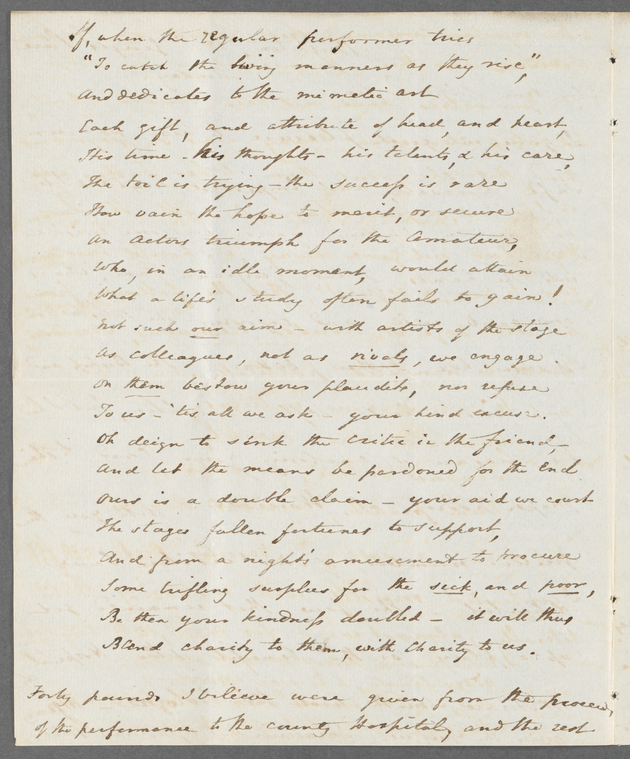 If, when the regular performer tries
"To catch the living manners as they rise",
And dedicates to the mimetic art
Each gift, and attribute of head, and heart,
His time - his thoughts - his talents, & his care,
The toil is trying - the success is rare
How vain the hope to merit, or secure
An Actors triumph for the Amateur,
Who, in an idle moment, would attain
What a life's study often fails to gain!
Not such our aim - with artists of the stage
As colleagues, not as rivals, we engage.
On them bestow your plaudits, nor refuse
To us - 'tis all we ask - your kind excuse.
Oh deign to sink the critic in the friend, -
And let the means be pardoned for the End
Ours is a double claim - your aid we court
The stages fallen fortunes to support,
And from a night's amusement to procure
Some trifling supplies for the sick, and poor,
Be then your kindness doubled - it will thus
Blend charity to them, with Charity to us.
Forty pounds I believe were given from the proceeds
of the performance to the county Hospital, and the rest